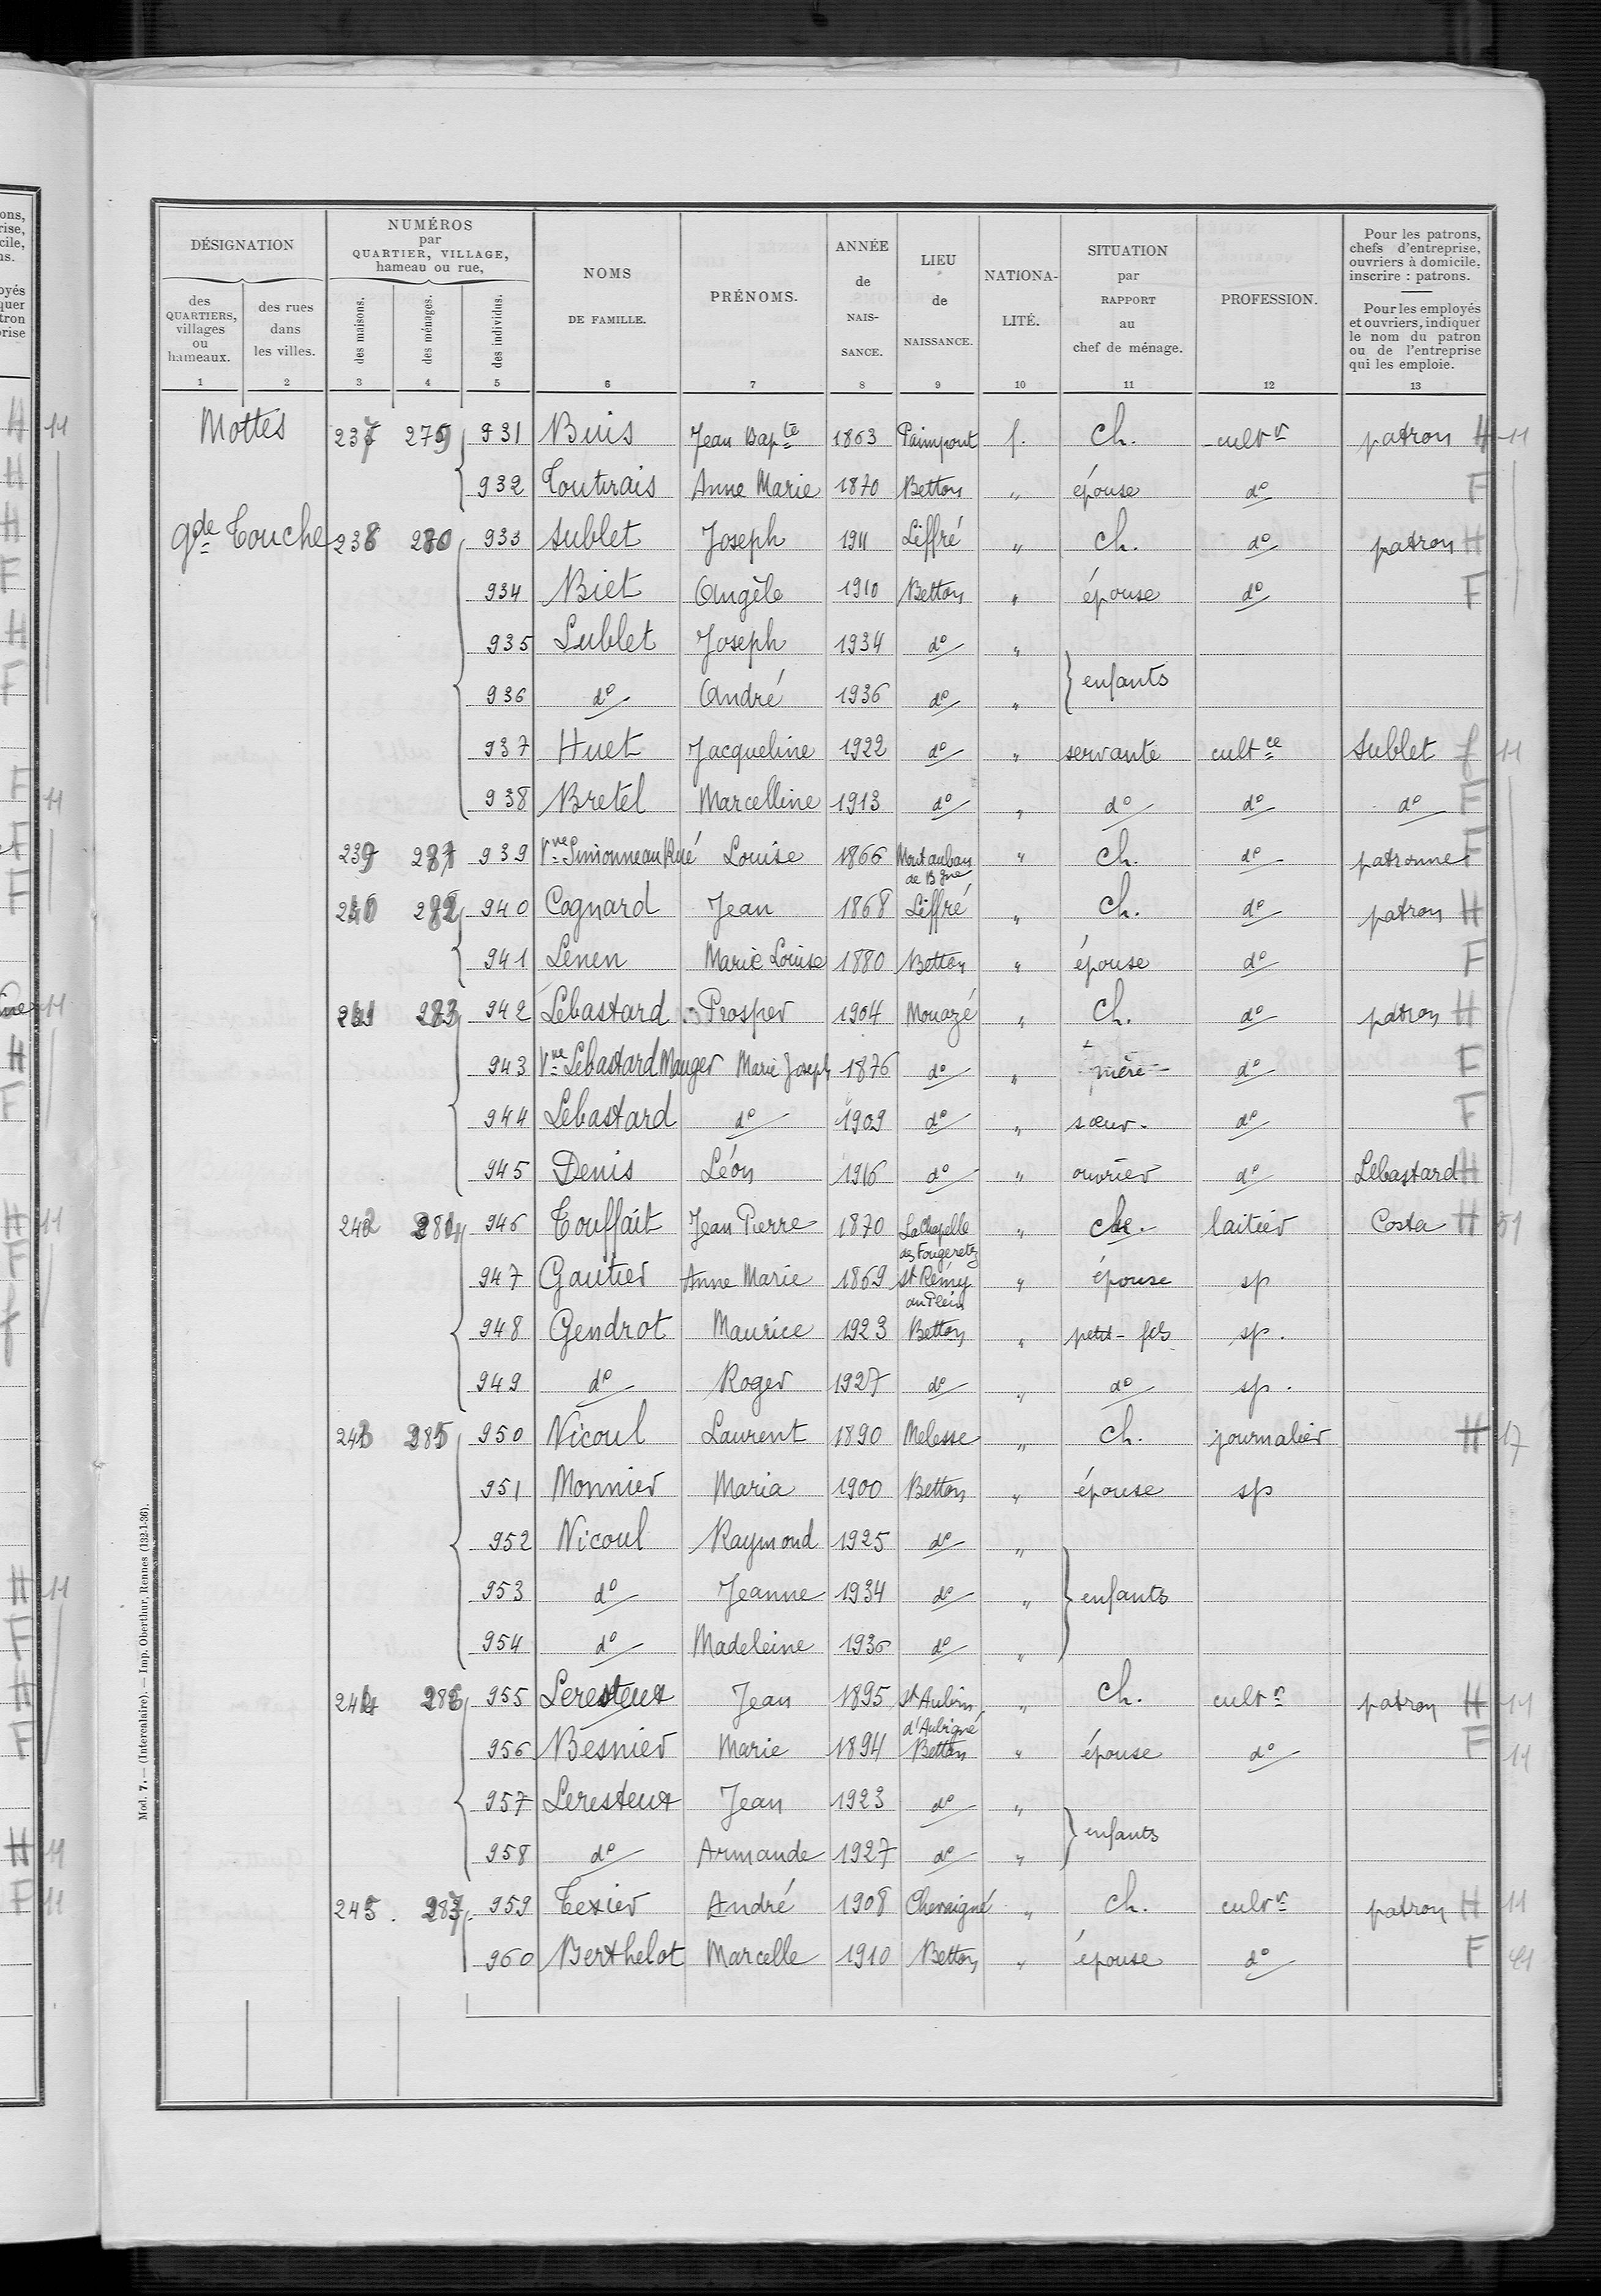 DÉSIGNATION
des QUARTIERS, villages ou hameaux.
des rues dans les villes.
NUMÉROS par QUARTIER, VILLAGE, hameau ou rue,
des maisons.
des ménages.
des individus.
NOMS DE FAMILLE.
PRÉNOMS.
ANNÉE de NAIS-SANCE.
LIEU de NAISSANCE.
NATIONA-LITÉ.
SITUATION par RAPPORT au chef de ménage.
PROFESSION.
Pour les patrons, chefs d'entreprise, ouvriers à domicile, inscrire : patrons.
Pour les employés et ouvriers, indiquer le nom du patron ou de l'entreprise qui les emploie.
1 2 3 4 5 6 7 8 9 10 11 12 13
Mottes 237 279 931 Buis Jean Bapte 1863 Paimpont f. ch. cultr patron H 11
932 Toutirais Anne Marie 1870 Betton " épouse do F
gde Touche 238 280 933 Sublet Joseph 1911 Liffré " ch. do patron H
934 Biet Angèle 1910 Betton " épouse do F
935 Sublet Joseph 1934 do "
enfants
936 do André 1936 do "
937 Huet Jacqueline 1922 do " servante cultce Sublet f 11
938 Bretel Marcelline 1913 do " do do do F
239 281 939 Vve Simonneau Louise 1866 Montauban de Bgne " ch. do patronne F
240 282 940 Cognard Jean 1868 Liffré " ch. do patron H
941 Lenen Marie Louise 1880 Betton " épouse do F
241 283 942 Lebastard Prosper 1904 Mouazé " ch. do patron H
943 Vve Lebastard Mauger Marie Joseph 1876 do " mère do F
944 Lebastard do 1909 do " sœur do F
945 Denis Léon 1916 do " ouvrier do Lebastard H
242 284 946 Touffait Jean Pierre 1870 La Chapelle des Fougeretz " ch. laitier Costa H 51
947 Gautier Anne Marie 1869 St Rémy du Plein " épouse sp
948 Gendrot Maurice 1923 Betton " petit-fils sp.
949 do Roger 1927 do " do sp.
243 285 950 Nicoul Laurent 1890 Melesse " ch. journalier H 17
951 Monnier Maria 1900 Betton " épouse sp
952 Nicoul Raymond 1925 do "
953 do Jeanne 1934 do " enfants
954 do Madeleine 1936 do "
244 286 955 Veresteux Jean 1895 St Aubin d'Aubigné " ch. cultr patron H 11
956 Besnier Marie 1894 Betton " épouse do F 11
957 Leresteux Jean 1923 do "
enfants
958 do Armande 1927 do "
245. 287 959 Texier André 1908 Chevaigné " ch. cultr patron H 11
960 Berthelot Marcelle 1910 Betton " épouse do F 11
Mod. 7. — (Intercalaire). — Imp. Oberthur, Rennes (132-1-36).